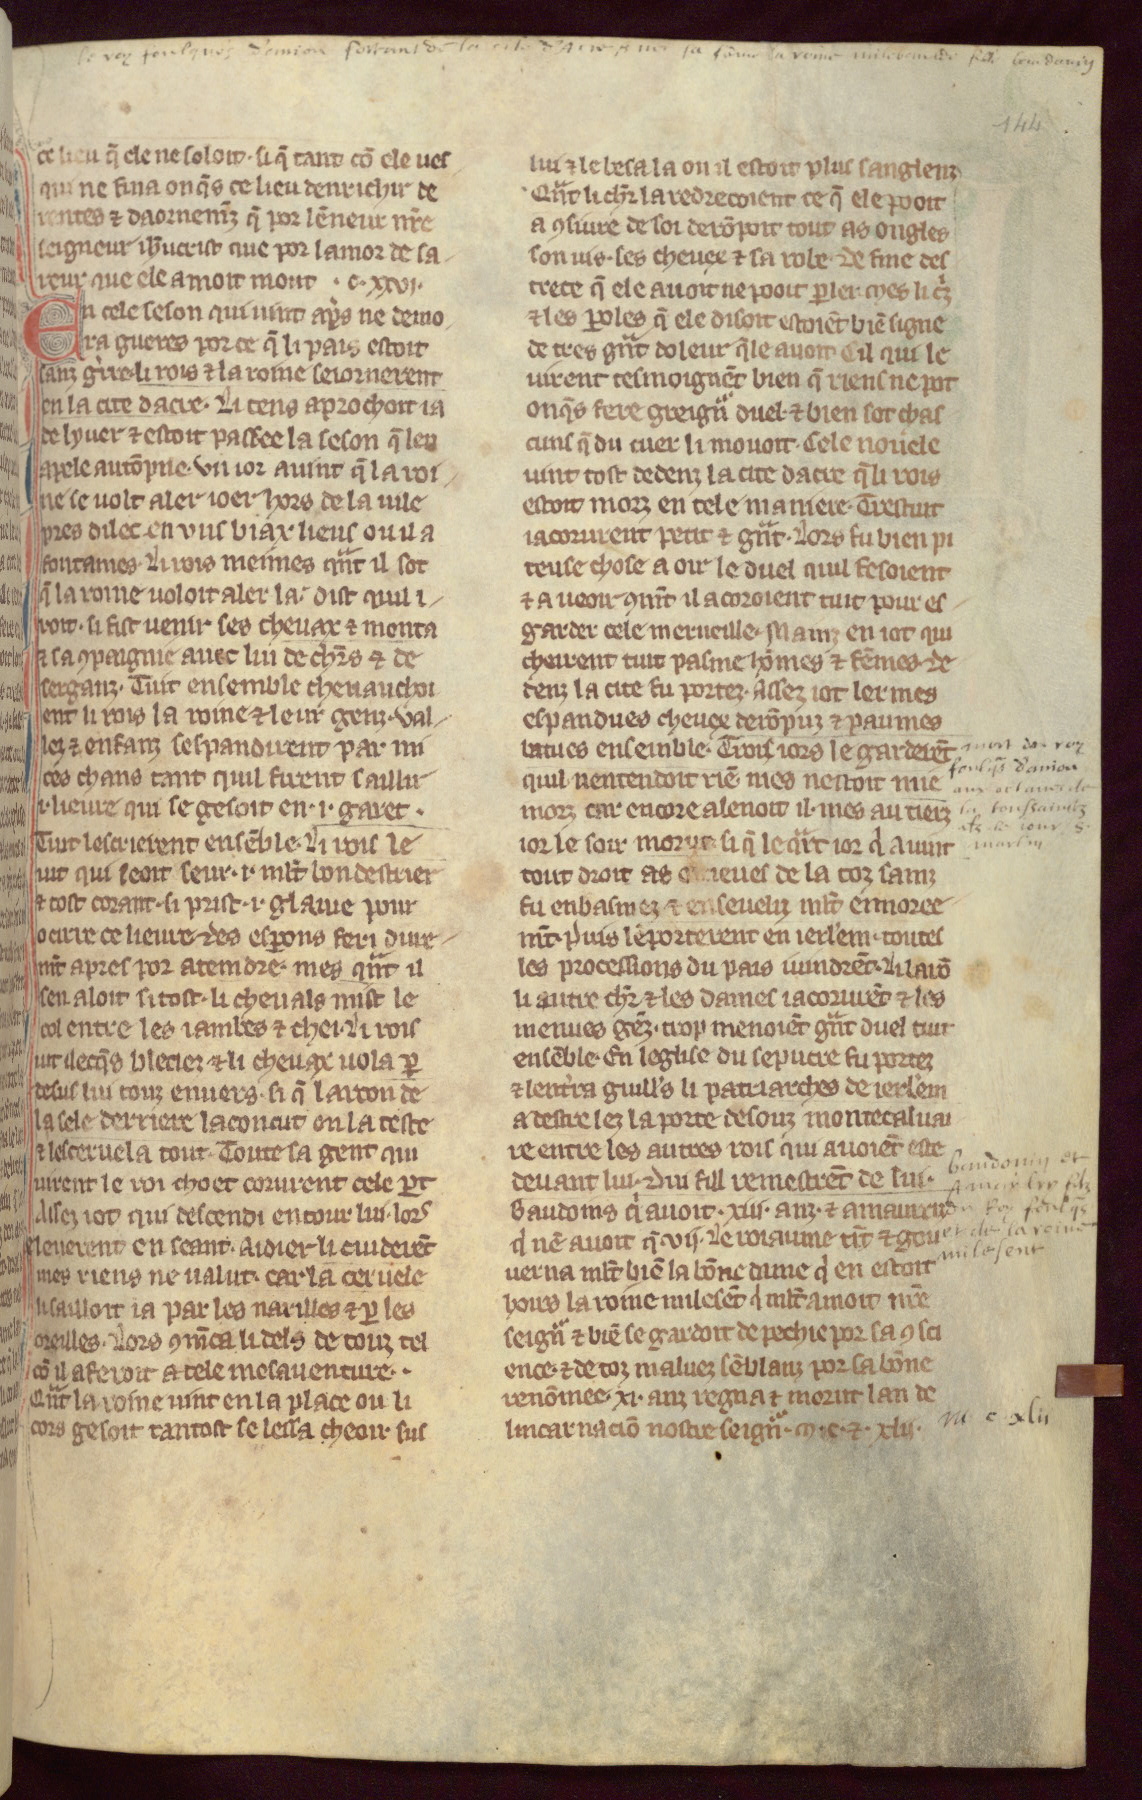 le roy foulques d'aniou sortant de la cite d'Acre avec sa fame la roine
144
ce lieu q̃ ele ne soloit · si q̃ tant cõ ele ues
qui ne fina onq̃s ce lieu denrichir de
rentes ⁊ daornemz̃ q̃ por lẽneur nr̃e
seigneur ih̃ucrist que por lamor de sa
reur que ele amoit mout · c · xxvi ·
En cele seson qui uint ap̃s ne demo
ra gueres por ce q̃ li pais estoit
sanz gr̃re · li rois ⁊ la roine seiornerent
en la cite dacre · Li tens aprochoit ia
de lyuer ⁊ estoit passee la seson q̃ len
apele autõpne · Vn ior auint q̃ la roi
ne se uolt aler ioer hors de la uile
pres dilec en uns biax lieus ou il a
fontaines · Li rois meimes qñt il sot
q̃ la roine uoloit aler la · dist quil i
roit · si fist uenir ses cheuax ⁊ monta
⁊ sa ꝯpaignie auec lui de chr̃s ⁊ de
serganz · Tuit ensemble cheuauchoi
ent li rois la roine ⁊ leur genz · Val
lez ⁊ enfanz sespandirent par mi
ces chans tant quil firent saillir
·i· lieure qui se gesoit en ·i· garet ·
Tuit lescrierent ensẽble · Li rois le
uit qui seoit seur ·i· ml̃t bon destrier
⁊ tost corant · si prist ·i· glaiue pour
ocirre ce lieure des esperons feri dure
mẽt apres por ateindre · mes qñt il
sen aloit si tost · li cheuals mist le
col entre les iambes ⁊ chei · Li rois
iut ilecq̃s bleciez ⁊ li cheuax uola ꝑ
desus lui touz enuers · si q̃ larcon de
la sele derriere laconcut en la teste
⁊ lescerucla tout · Toute sa gent qui
uirent le roi choet corurent cele ꝑt
Assez iot qui descendi entour lui · lors
leuerent en seant · Aidier li cuiderẽt
mes riens ne ualut · car la ceruele
li sailloit ia par les narilles ⁊ ꝑ les
oreilles · Lors ꝯmẽca li dels de touz tel
cõ il aferoit a tele mesauenture ·
Qñt la roine uint en la place ou li
cors gesoit tantost se lessa cheoir sus
lui ⁊ le besa la on il estoit plus sanglenz
Qñt li chr̃ la redrecoient ce q̃ ele pooit
a ꝯsiure de soi derõpoit tout as ongles
son uis · ses cheuex ⁊ sa robe · De fine des
trece q̃ ele auoit ne pooit ꝑler · mes li cz̃
⁊ les ꝑoles q̃ ele disoit estoiẽt biẽ signe
de tres gñt doleur q̃le auoit Cil qui le
uirent tesmoignẽt bien q̃ riens ne pot
onq̃s fere greigñ duel · ⁊ bien sot chas
cuns q̃ du cuer li mouoit · Cele nouele
uint tost dedenz la cite dacre q̃ li rois
estoit morz en tele maniere · Trestuit
iacorurent petit ⁊ gñt · Lors fu bien pi
teuse chose a oir le duel quil fesoient
⁊ a ueoir ꝯmẽt il acoroient tuit pour es
garder cele merueille · Mainz en iot qui
cheirent tuit pasme hõmes ⁊ fẽmes · De
denz la cite fu portez · Assez iot lermes
espandues cheuex derõpuz ⁊ paumes
batues ensemble · Trois iors le garderẽt
quil nentendoit riẽ · mes nestoit mie
morz car encore alenoit il · mes au tierz
ior le soir morut · si q̃ le qr̃t ior q̃ auint
tout droit as oitieues de la toz sainz
fu enbasmez ⁊ enseueliz ml̃t ennoree
mẽt · Puis lẽporterent en ierl̃em · toutes
les processions du pais iuindrẽt · Li baron
li autre chr̃ ⁊ les dames iacorurẽt ⁊ les
menues gẽz · trop menoiẽt gñt duel tuit
ensẽble · En leglise du sepucre fu portez
⁊ lentr̃ra guill̃s li patriarches de ierl̃em
a destre lez la porte desouz montecaluai
re entre les autres rois qui auoiẽt este
deuant lui · Dui fill remestrẽt de lui ·
Baudoins q̃ auoit · xiii · anz · ⁊ amauris
q̃ nẽ auoit q̃ · vij · Le roiaume tĩt ⁊ gou
uerna ml̃t biẽ la bõne dame q̃ en estoit
hoirs la roine milesẽt q̃ ml̃t amoit nr̃e
seigñ ⁊ biẽ se gardoit de pechie por sa ꝯsci
ence · ⁊ de toz maluez sẽblanz por sa bõne
renõmee · xi · anz regna ⁊ morut lan de
lincarnaciõ nostre seigñ · m · c · ⁊ · xlii ·
mort du roy
foulqs d'aniou
baudouin et
amaulry filz
du roy foulqs
et de la roine
milesent
m c xlii